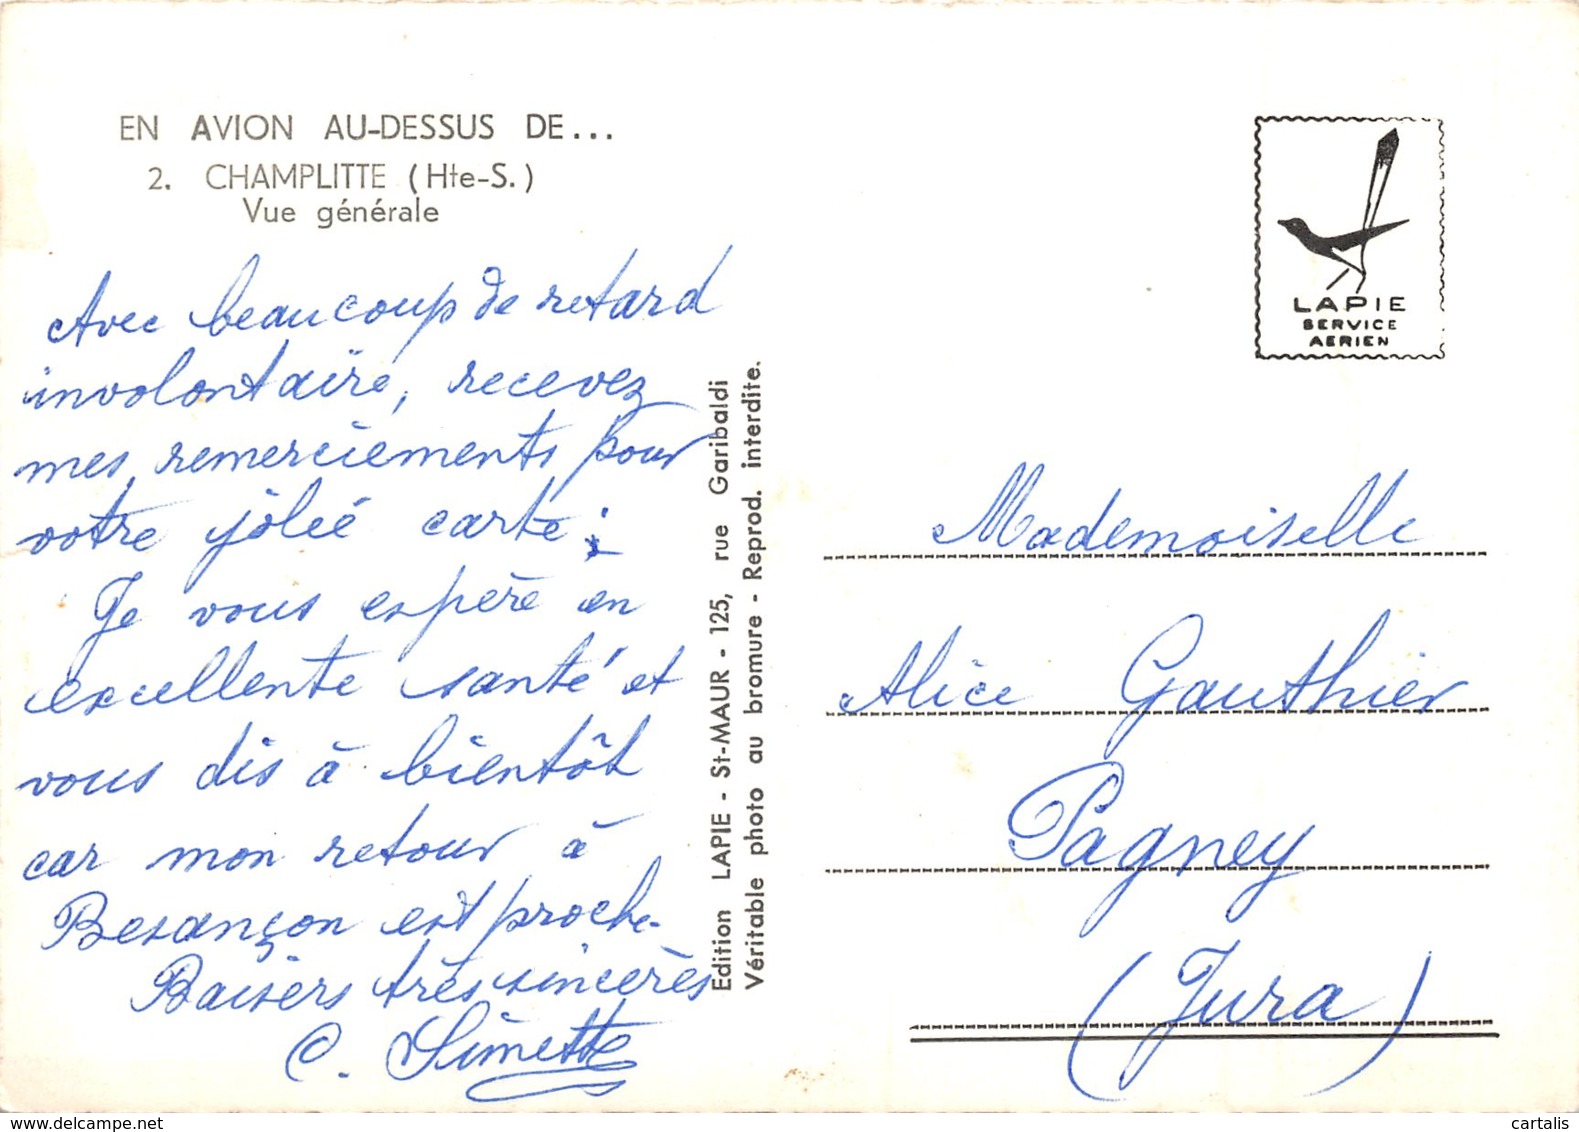 EN AVION AU-DESSUS DE...
2. CHAMPLITTE (Hte-S.)
Vue générale
Avec beaucoup de retard
involontaire, recevez
mes remerciements pour
votre jolie carte.
Je vous espère en
excellente santé et
vous dis à bientôt
car mon retour à
Besançon est proche.
Baisers très sincères
C. Simette
Edition LAPIE - St-MAUR - 125, rue Garibaldi
Véritable photo au bromure - Reprod. interdite.
LAPIE
SERVICE
AERIEN
Mademoiselle
Alice Gauthier
Pagney
(Jura)
delcampe.net
cartalis